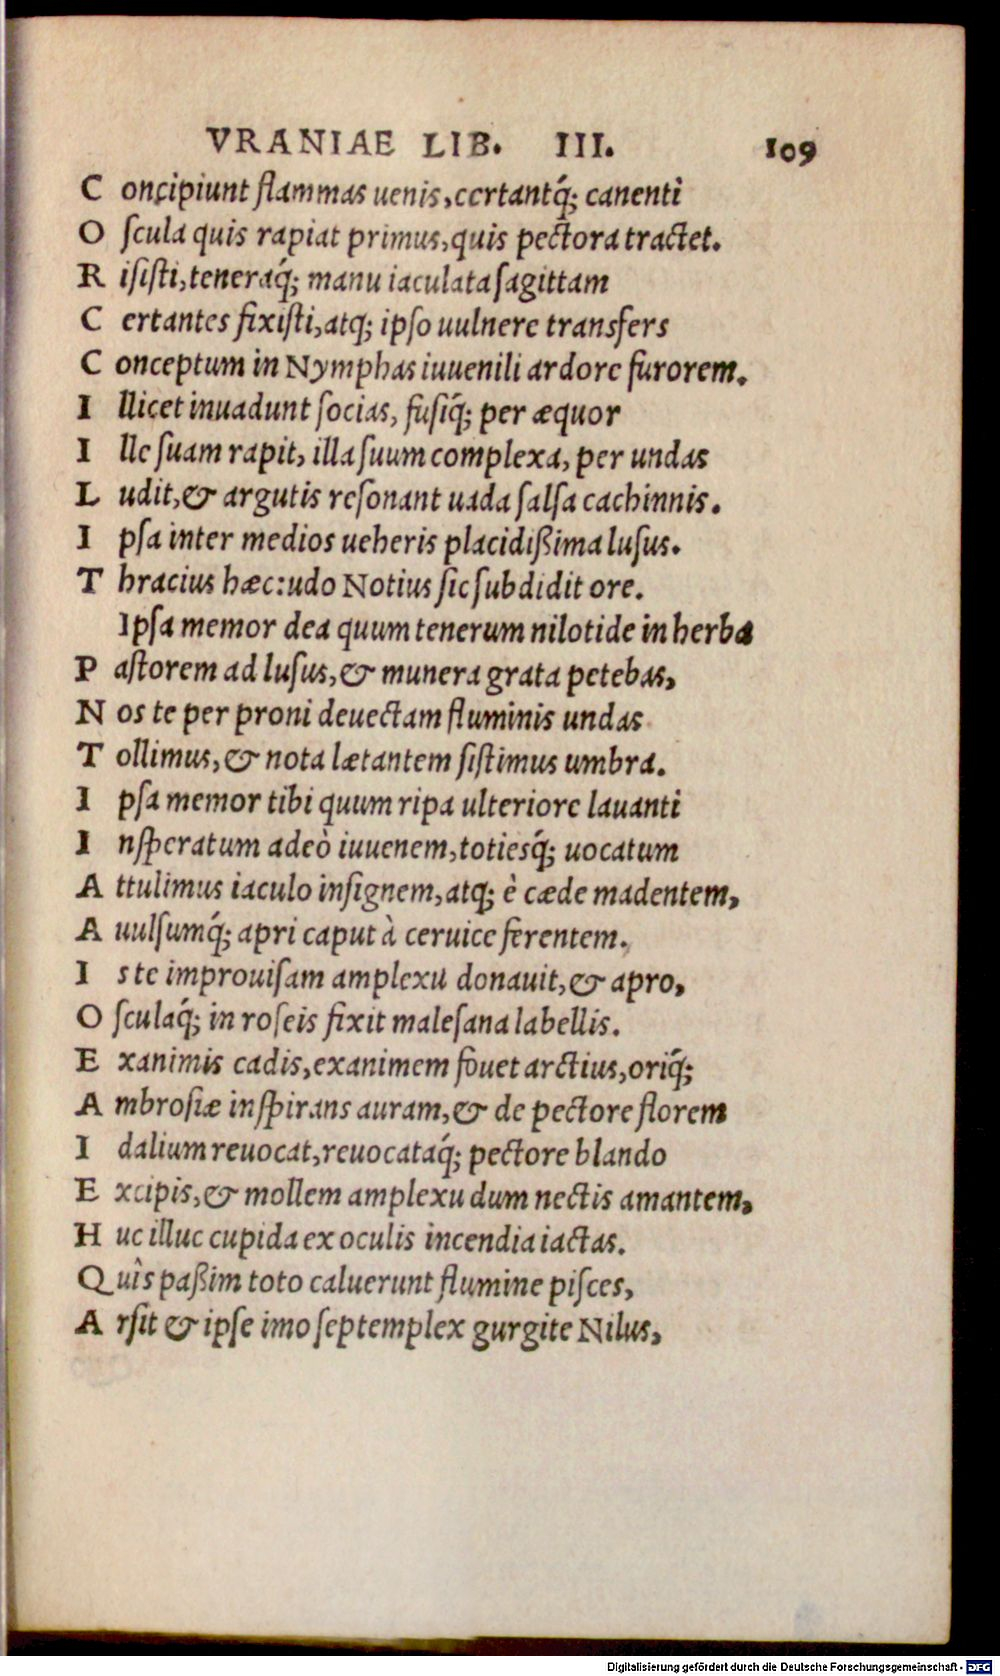 VRANIAE LIB. III. 109
C oncipiunt flammas uenis, certantq́; canenti
O ſcula quis rapiat primus, quis pectora tractet.
R iſiſti, teneraq́; manu iaculata ſagittam
C ertantes fixiſti, atq; ipſo uulnere transfers
C onceptum in Nymphas iuuenili ardore furorem.
I llicet inuadunt ſocias, fuſiq́; per æquor
I lle ſuam rapit, illa ſuum complexa, per undas
L udit, & argutis reſonant uada ſalſa cachinnis.
I pſa inter medios ueheris placidißima luſus.
T hracius hæc: udo Notius ſic ſubdidit ore.
Ipſa memor dea quum tenerum nilotide in herba
P aſtorem ad luſus, & munera grata petebas,
N os te per proni deuectam fluminis undas
T ollimus, & nota lætantem ſiſtimus umbra.
I pſa memor tibi quum ripa ulteriore lauanti
I nſperatum adeò iuuenem, totiesq́; uocatum
A ttulimus iaculo inſignem, atq; è cæde madentem,
A uulſumq́; apri caput à ceruice ferentem.
I ste improuiſam amplexu donauit, & apro,
O ſculaq́; in roſeis fixit maleſana labellis.
E xanimis cadis, exanimem fouet arctius, oriq́;
A mbroſiæ inſpirans auram, & de pectore florem
I dalium reuocat, reuocataq́; pectore blando
E xcipis, & mollem amplexu dum nectis amantem,
H uc illuc cupida ex oculis incendia iactas.
Q uîs paßim toto caluerunt flumine piſces,
A rſit & ipſe imo ſeptemplex gurgite Nilus,
Digitalisierung gefördert durch die Deutsche Forschungsgemeinschaft - DFG